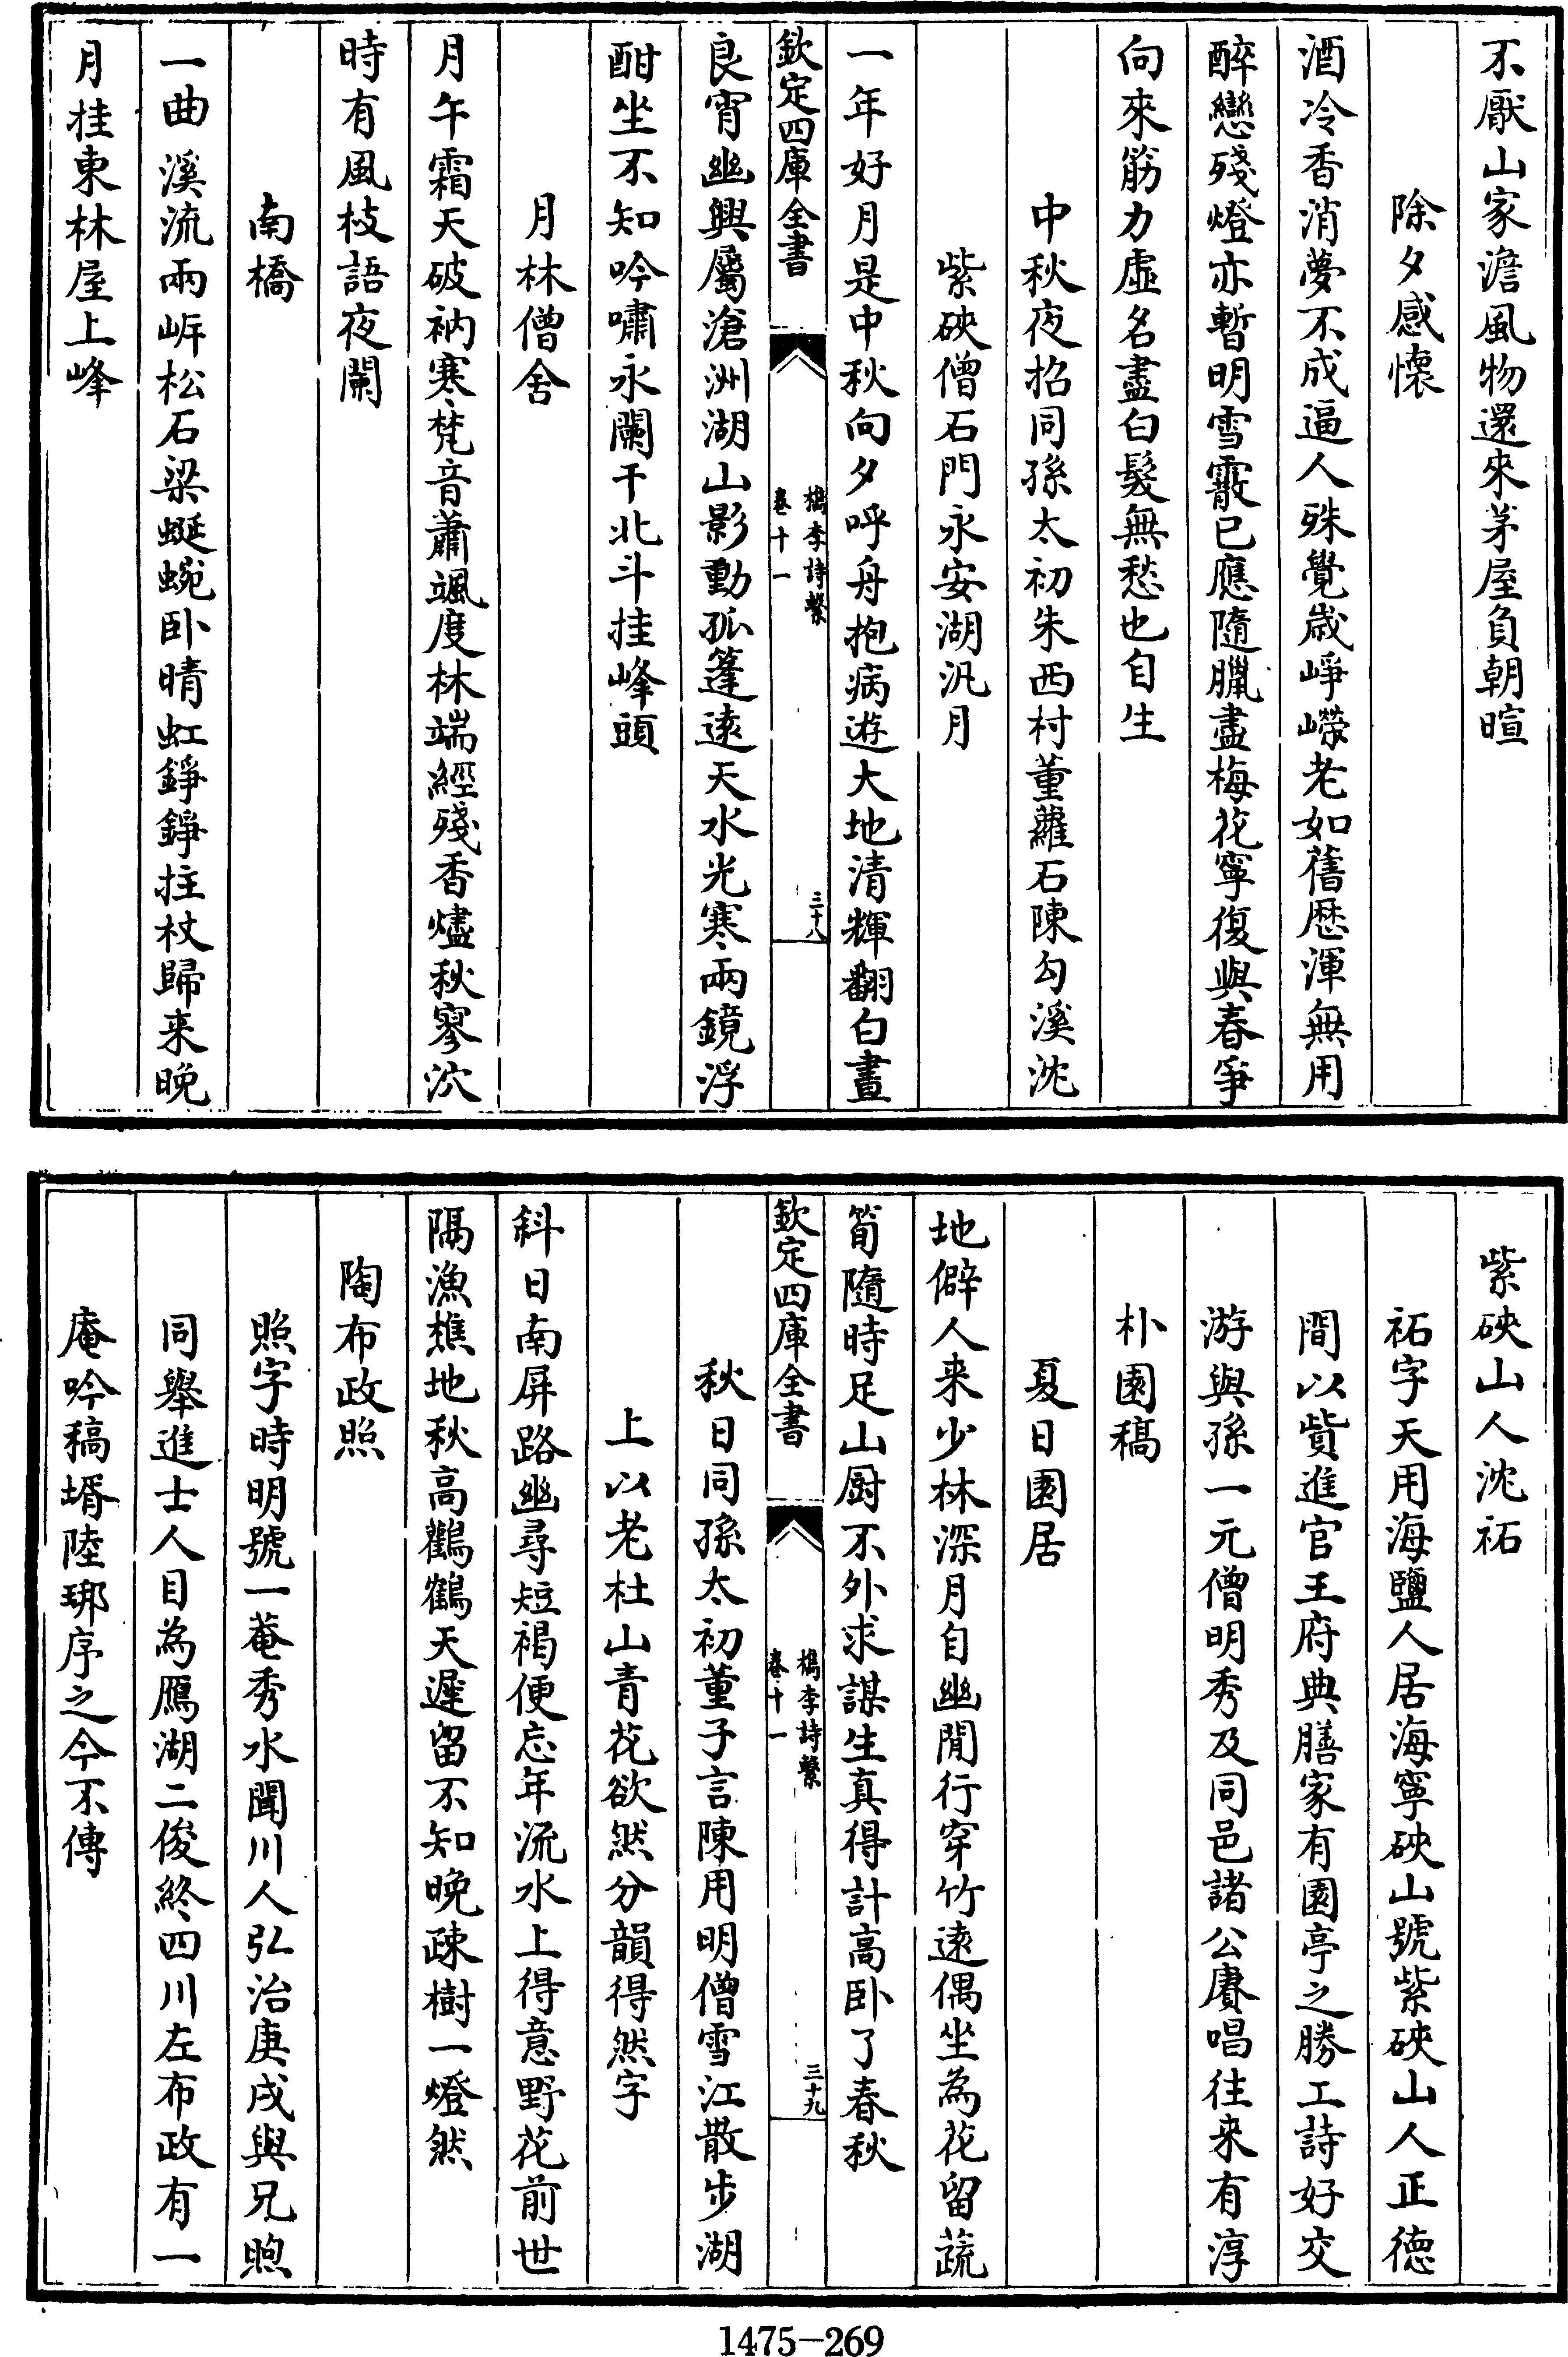 不厭山家澹風物還來茅屋負朝暄
除夕感懷
酒冷香消夢不成逼人殊覺歲崢嶸老如舊歷渾無用
醉戀殘燈亦暫明雪霰已應隨臘盡梅花寧復與春爭
向來筋力虛名盡白髮無愁也自生
中秋夜招同孫太初朱西村董蘿石陳勾溪沈
紫硤僧石門永安湖汎月
一年好月是中秋向夕呼舟抱病遊大地清輝翻白晝
欽定四庫全書
檇李詩繫
卷十一
三十八
良宵幽興屬滄洲湖山影動孤篷遠天水光寒兩鏡浮
酣坐不知吟嘯永闌干北斗挂峰頭
月林僧舍
月午霜天破衲寒梵音蕭颯度林端經殘香燼秋寥泬
時有風枝語夜闌
南橋
一曲溪流兩岸松石梁蜒蜿卧晴虹錚錚拄杖歸来晚
月挂東林屋上峰
紫硤山人沈祏
祏字天用海鹽人居海寧硤山號紫硤山人正德
間以貲進官王府典膳家有園亭之勝工詩好交
游與孫一元僧明秀及同邑諸公賡唱往来有淳
朴園稿
夏日園居
地僻人来少林深月自幽閒行穿竹遠偶坐為花留蔬
筍隨時足山厨不外求謀生真得計高卧了春秋
欽定四庫全書
檇李詩繫
卷十一
三十九
秋日同孫太初董子言陳用明僧雪江散步湖
上以老杜山青花欲然分韻得然字
斜日南屏路幽尋短褐便忘年流水上得意野花前世
隔漁樵地秋高鸛鶴天遲留不知晚疎樹一燈然
陶布政照
照字時明號一菴秀水聞川人弘治庚戌與兄煦
同舉進士人目為鴈湖二俊終四川左布政有一
庵吟稿壻陸琊序之今不傳
1475-269